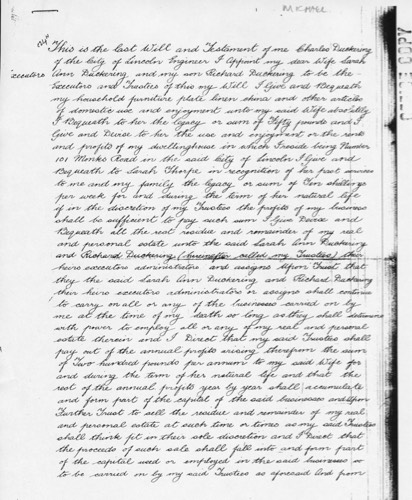 This is the last Will and Testament of me Charles Duckering
of the City of Lincoln Engineer I Appoint my dear Wife Sarah
Executors Ann Duckering and my son Richard Duckering to be the
Executors and Trustees of this my Will I Give and Bequeath
my household furniture plate linen china and other articles
of domestic use and enjoyment unto my said Wife absolutely
I Bequeath to her the legacy or sum of Fifty pounds and I
Give and Devise to her the use and enjoyment or the rents
and profits of my dwellinghouse in which I reside being Number
101 Monks Road in the said City of Lincoln I Give and
Bequeath to Sarah Thorpe in recognition of her past services
to me and my family the legacy or sum of Ten shillings
per week for and during the term of her natural life
if in the discretion of my Trustees the profits of my business
shall be sufficient to pay such sum I Give Devise and
Bequeath all the rest residue and remainder of my real
and personal estate unto the said Sarah Ann Duckering
and Richard Duckering (hereinafter called my Trustees) their
heirs executors administrators and assigns Upon Trust that
they the said Sarah Ann Duckering and Richard Duckering
their heirs executors administrators or assigns shall continue
to carry on all or any of the businesses carried on by
me at the time of my death so long as they shall determine
with power to employ all or any of my real and personal
estate therein and I Direct that my said Trustees shall
pay out of the annual profits arising therefrom the sum
of Two hundred pounds per annum to my said Wife for
and during the term of her natural life and that the
rest of the annual profits year by year shall accumulate
and form part of the capital of the said businesses and Upon
Further Trust to sell the residue and remainder of my real
and personal estate at such time or times as my said Trustees
shall think fit in their sole discretion and I Direct that
the proceeds of such sale shall fall into and form part
of the capital used or employed in the said businesses so
to be carried on by my said Trustees as aforesaid And from